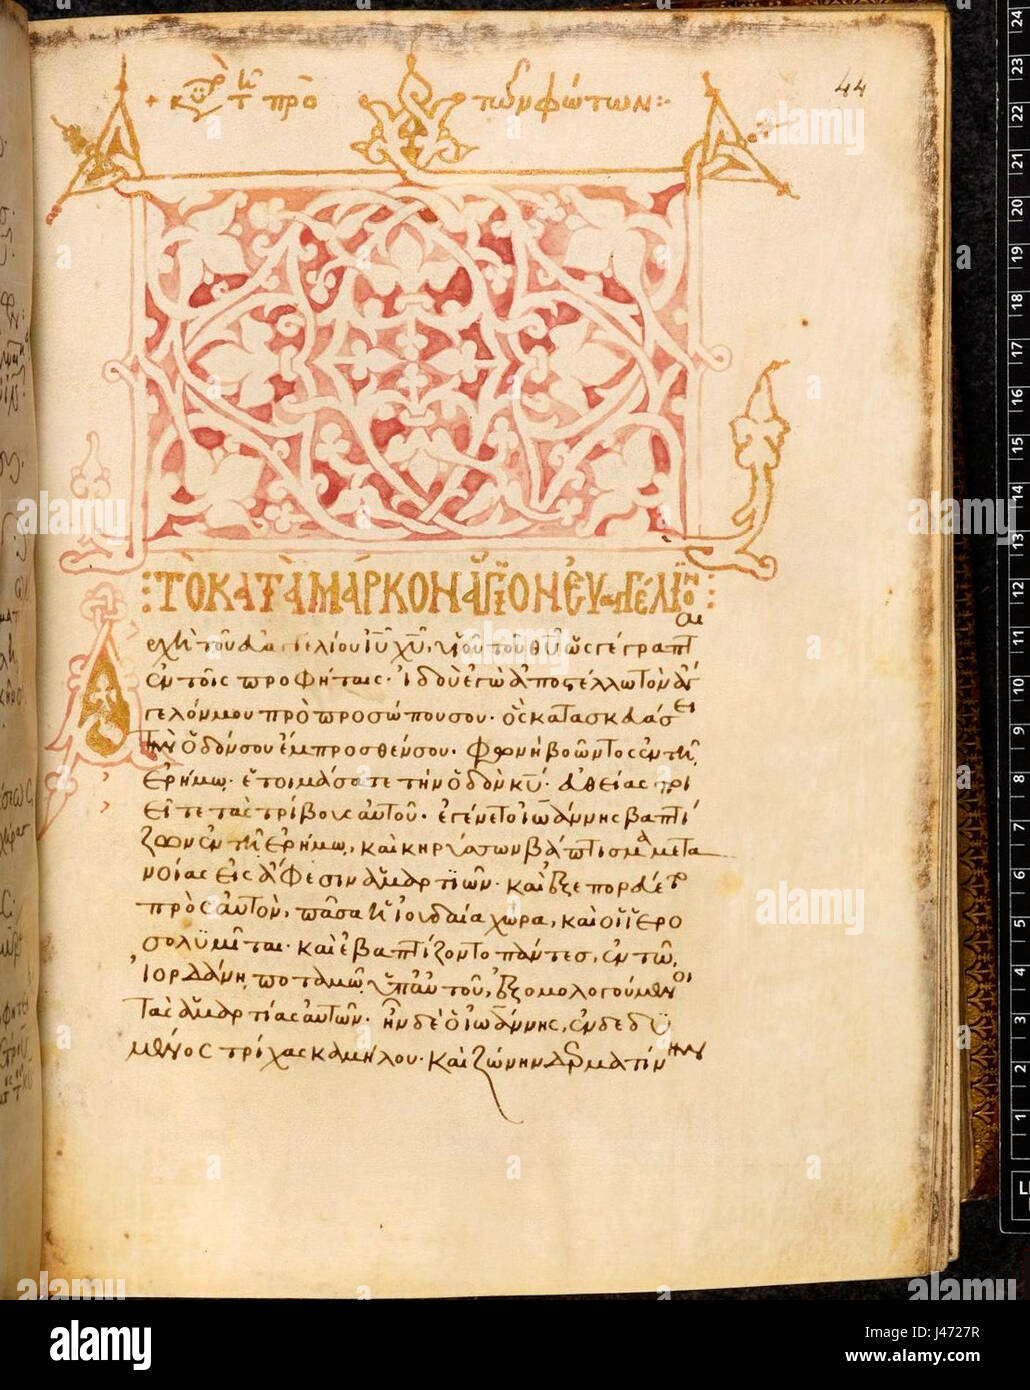 + κυρ κτ πρὸ τῶν φώτων :·
44
: ΤῸ ΚΑΤᾺ ΜΆΡΚΟΝ ἍΓΙΟΝ ἘΥΑΓΈΛΙΟΝ :
Ἀρχὴ τοῦ εὐαγγελίου ἰῦ χῦ, υἱοῦ τοῦ θῦ ὡς γέγραπται
ἐν τοῖς προφήταις· ἰδοὺ ἐγὼ ἀποστέλλω τὸν ἄγ
γελόν μου πρὸ προσώπου σου· ὃς κατασκευάσει
τὴν ὁδόν σου ἔμπροσθέν σου· φωνὴ βοῶντος ἐν τῆ
ἐρήμω· ἑτοιμάσατε τὴν ὁδὸν κῦ· εὐθείας ποι
εῖτε τὰς τρίβους αὐτοῦ· ἐγένετο ἰωάννης βαπτί
ζων ἐν τῆ ἐρήμω, καὶ κηρύσσων βάπτισμα μετα
νοίας εἰς ἄφεσιν ἁμαρτιῶν· καὶ ἐξεπορεύετο
πρὸς αὐτὸν, πᾶσα ἡ ἰουδαία χώρα, καὶ οἱ ἱερο
σολυμῖται· καὶ ἐβαπτίζοντο πάντες, ἐν τῶ
ἰορδάνη ποταμῶ ὑπ' αὐτοῦ, ἐξομολογούμενοι
τὰς ἁμαρτίας αὐτῶν· ἦν δὲ ὁ ἰωάννης, ἐνδεδυ
μένος τρίχας καμήλου· καὶ ζώνην δερματίνην
24
23
22
21
20
19
18
17
16
15
14
13
12
11
10
9
8
7
6
5
4
3
2
1
alamy
alamy stock photo
J4727R
www.alamy.com